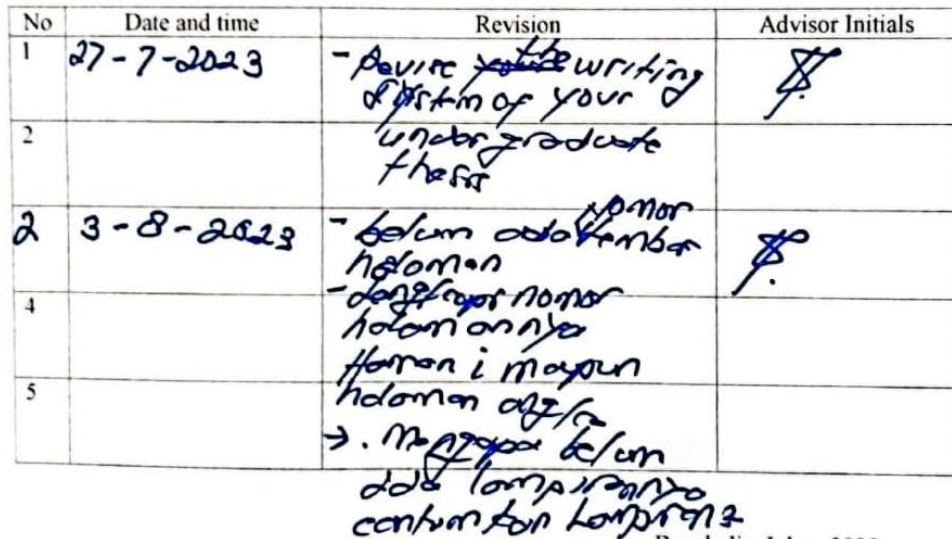 No Date and time Revision Advisor Initials
1 27-7-2023 - Revise the writing
system of your
2 undergraduate
thesis
nomor
2 3-8-2023 - belum ada lembar
halaman
- lengkapi nomor
4 halamannya
Halaman i maupun
5 halaman angka
→ . Mengapa belum
ada lampirannya
cantumkan